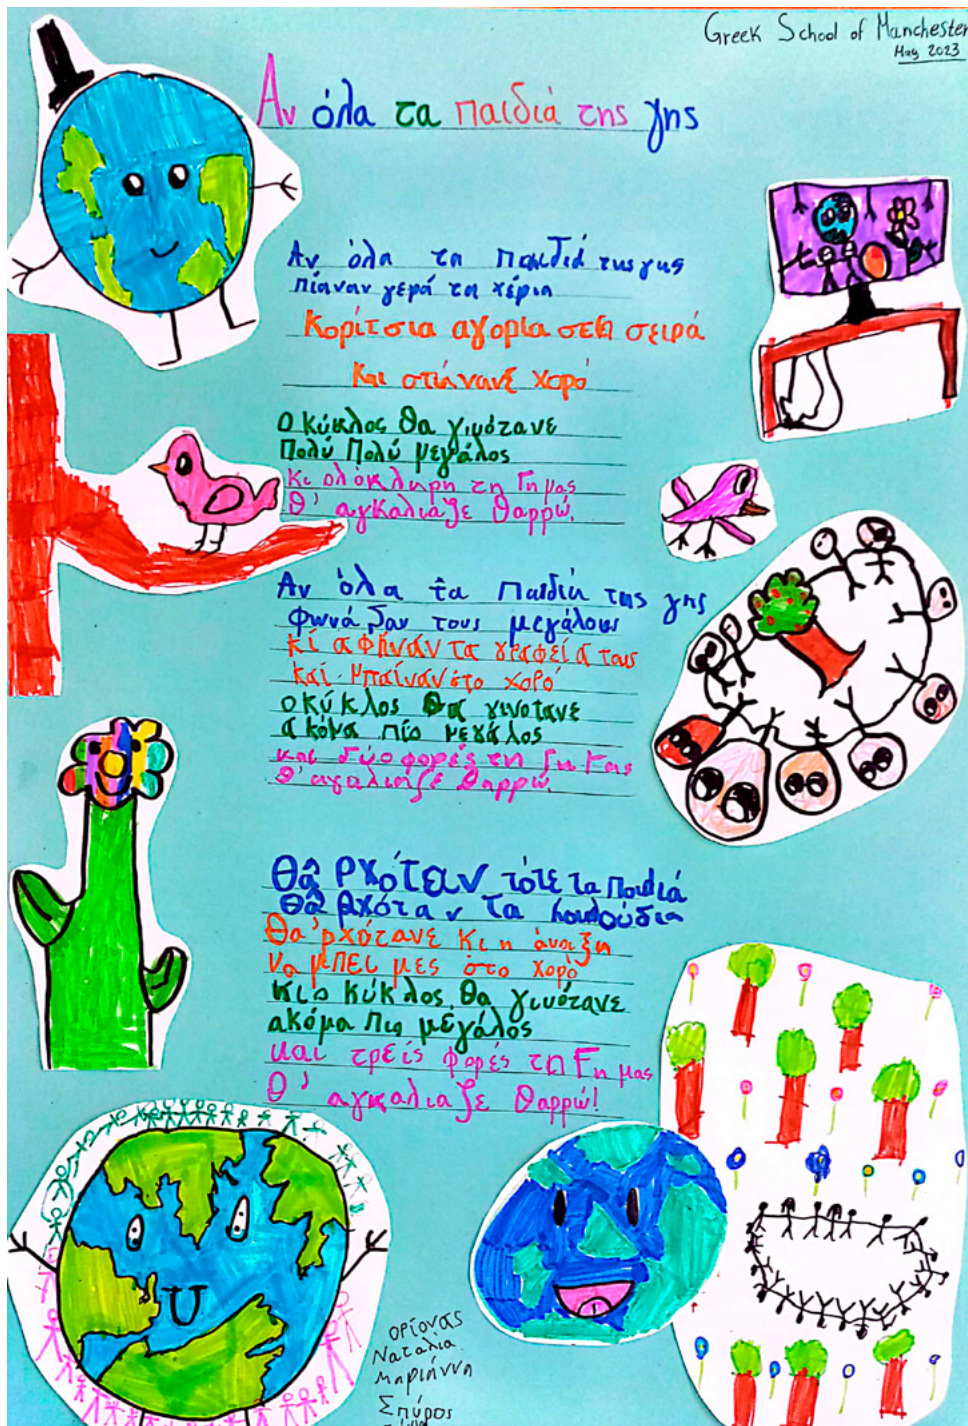 Greek School of Manchester
May 2023
Αν όλα τα παιδιά της γης
Αν όλα τα παιδιά της γης
πιάναν γερά τα χέρια
Κορίτσια αγορία στη σειρά
Και στήνανε χορό
Ο κύκλος θα γινότανε
Πολύ Πολύ μεγάλος
Κι ολόκληρη τη Γη μας
Θ' αγκάλιαζε θαρρώ.
Αν όλα τα παιδιά της γης
φωνάζαν τους μεγάλους
κί αφήναν τα γραφεία τους
καί μπαίναν στο χορό
ο κύκλος θα γινοτανε
ακόμα πίο μεγάλος
και δύο φορές τη Γη μας
θ' αγαλιαζε θαρρώ.
Θα ρχόταν τότε τα παιδιά
Θα ρχόταν τα λουλούδια
Θα 'ρχότανε κι η άνοιξη
Να μπει μες στο χορό
κι ο κύκλος θα γινότανε
ακόμα πιο μεγάλος
και τρείς φορές τη Γη μας
Θ' αγκαλιαζε θαρρώ!
Ορίονας
Ναταλια
Μαριάννη
Σπύρος